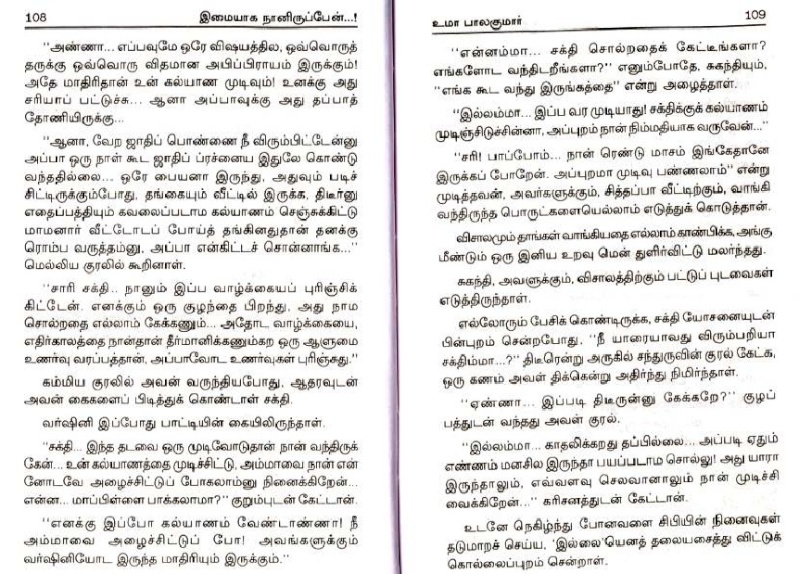 108
இமையாக நானிருப்பேன்...!
"அண்ணா... எப்பவுமே ஒரே விஷயத்தில, ஒவ்வொருத்
தருக்கு ஒவ்வொரு விதமான அபிப்பிராயம் இருக்கும்!
அதே மாதிரிதான் உன் கல்யாண முடிவும்! உனக்கு அது
சரியாப் பட்டுச்சு... ஆனா அப்பாவுக்கு அது தப்பாத்
தோணியிருக்கு...
"ஆனா, வேற ஜாதிப் பொண்ணை நீ விரும்பிட்டேன்னு
அப்பா ஒரு நாள் கூட ஜாதிப் ப்ரச்னைய இதுலே கொண்டு
வந்ததில்லை... ஒரே பையனா இருந்து, அதுவும் படிச்
சிட்டிருக்கும்போது, தங்கையும் வீட்டில் இருக்க, திடீர்னு
எதைப்பத்தியும் கவலைப்படாம கல்யாணம் செஞ்சுக்கிட்டு
மாமனார் வீட்டோடப் போய்த் தங்கினதுதான் தனக்கு
ரொம்ப வருத்தம்னு, அப்பா என்கிட்டச் சொன்னாங்க..."
மெல்லிய குரலில் கூறினாள்.
"சாரி சக்தி.. நானும் இப்ப வாழ்க்கையப் புரிஞ்சிக்
கிட்டேன். எனக்கும் ஒரு குழந்தை பிறந்து, அது நாம
சொல்றதை எல்லாம் கேக்கணும்... அதோட வாழ்க்கையை,
எதிர்காலத்தை நான்தான் தீர்மானிக்கணும்கற ஒரு ஆளுமை
உணர்வு வரப்பத்தான், அப்பாவோட உணர்வுகள் புரிஞ்சுது."
கம்மிய குரலில் அவன் வருந்தியபோது, ஆதரவுடன்
அவன் கைகளைப் பிடித்துக் கொண்டாள் சக்தி.
வர்ஷினி இப்போது பாட்டியின் கையிலிருந்தாள்.
"சக்தி... இந்த தடவை ஒரு முடிவோடுதான் நான் வந்திருக்
கேன்... உன் கல்யாணத்தை முடிச்சிட்டு, அம்மாவை நான் என்
னோடவே அழைச்சிட்டுப் போகலாம்னு நினைக்கிறேன்...
என்ன... மாப்பிள்ளை பாக்கலாமா?" குறும்புடன் கேட்டான்.
"எனக்கு இப்போ கல்யாணம் வேண்டாண்ணா! நீ
அம்மாவை அழைச்சிட்டுப் போ! அவங்களுக்கும்
வர்ஷினியோட இருந்த மாதிரியும் இருக்கும்."
உமா பாலகுமார்
109
"என்னம்மா... சக்தி சொல்றதைக் கேட்டீங்களா?
எங்களோட வந்திடறீங்களா?" எனும்போதே, சுகந்தியும்,
"எங்க கூட வந்து இருங்கத்தை" என்று அழைத்தாள்.
"இல்லம்மா... இப்ப வர முடியாது! சக்திக்குக் கல்யாணம்
முடிஞ்சிடுச்சின்னா, அப்புறம் நான் நிம்மதியாக வருவேன்..."
"சரி! பாப்போம்... நான் ரெண்டு மாசம் இங்கேதானே
இருக்கப் போறேன். அப்புறமா முடிவு பண்ணலாம்" என்று
முடித்தவன், அவர்களுக்கும், சித்தப்பா வீட்டிற்கும், வாங்கி
வந்திருந்த பொருட்களையெல்லாம் எடுத்துக் கொடுத்தான்.
விசாலமும் தாங்கள் வாங்கியதை எல்லாம் காண்பிக்க, அங்கு
மீண்டும் ஒரு இனிய உறவு மென் துளிர்விட்டு மலர்ந்தது.
சுகந்தி, அவளுக்கும், விசாலத்திற்கும் பட்டுப் புடவைகள்
எடுத்திருந்தாள்.
எல்லோரும் பேசிக் கொண்டிருக்க, சக்தி யோசனையுடன்
பின்புறம் சென்றபோது, "நீ யாரையாவது விரும்பறியா
சக்திம்மா...?" திடீரென்று அருகில் சந்துருவின் குரல் கேட்க,
ஒரு கணம் அவள் திக்கென்று அதிர்ந்து நிமிர்ந்தாள்.
"ஏண்ணா... இப்படி திடீருன்னு கேக்கறே?" குழப்
பத்துடன் வந்தது அவள் குரல்.
"இல்லம்மா... காதலிக்கறது தப்பில்லை... அப்படி ஏதும்
எண்ணம் மனசில இருந்தா பயப்படாம சொல்லு! அது யாரா
இருந்தாலும், எவ்வளவு செலவானாலும் நான் முடிச்சி
வைக்கிறேன்..." கரிசனத்துடன் கேட்டான்.
உடனே நெகிழ்ந்து போனவளை சிபியின் நினைவுகள்
தடுமாறச் செய்ய, 'இல்லை'யெனத் தலையசைத்து விட்டுக்
கொல்லைப்புறம் சென்றாள்.